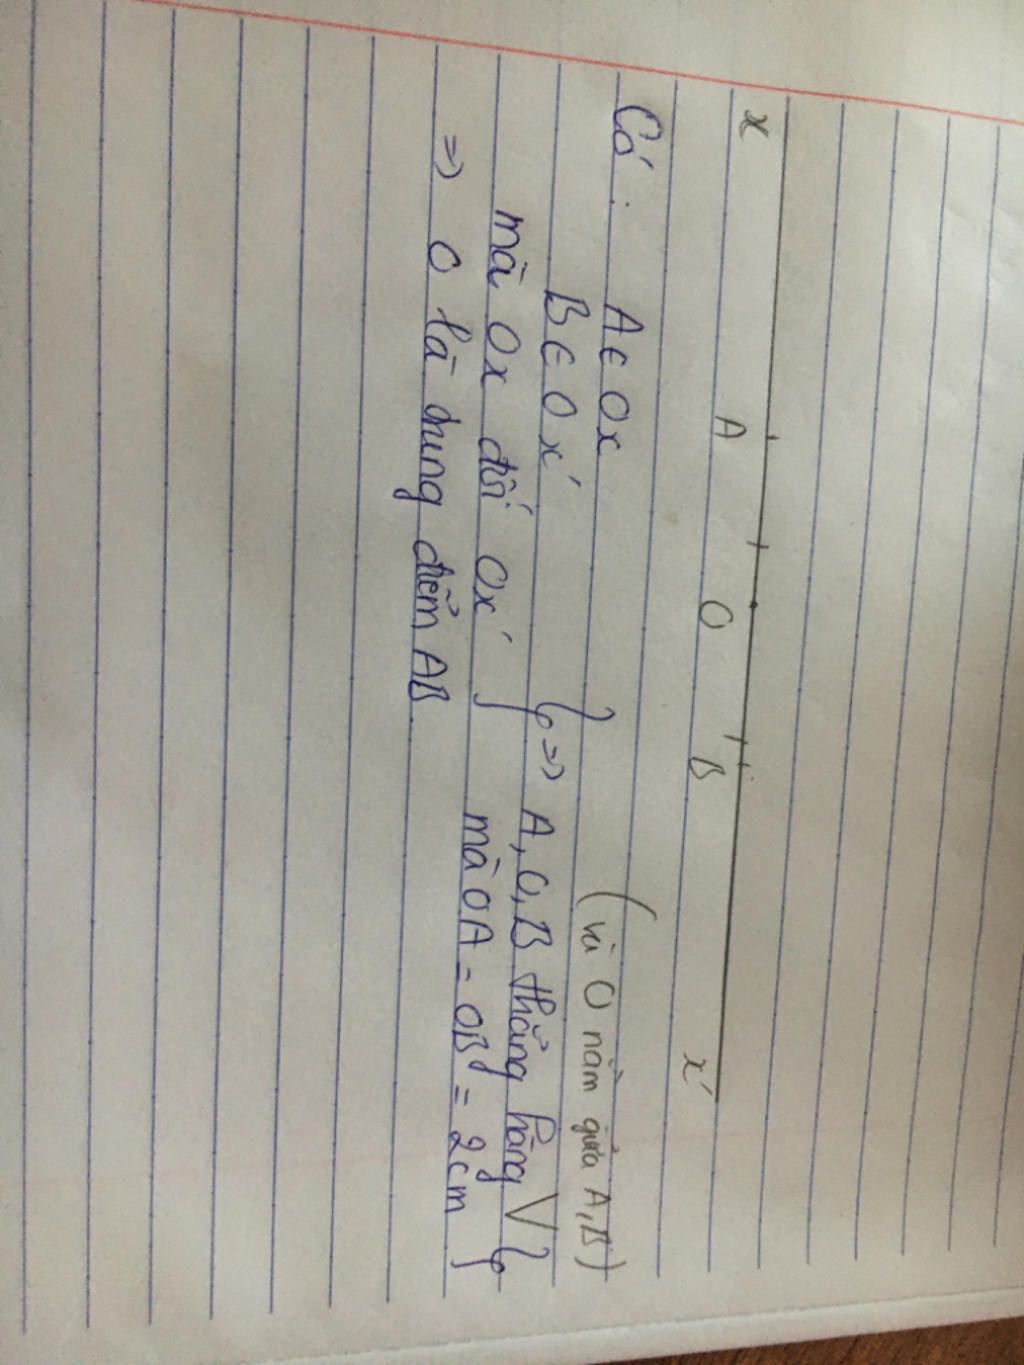 x A O B x'
Có : A ∈ Ox (và O nằm giữa A, B)
B ∈ Ox' } => A, O, B thẳng hàng V }
mà Ox đối Ox' mà OA = OB = 2cm
=> O là trung điểm AB